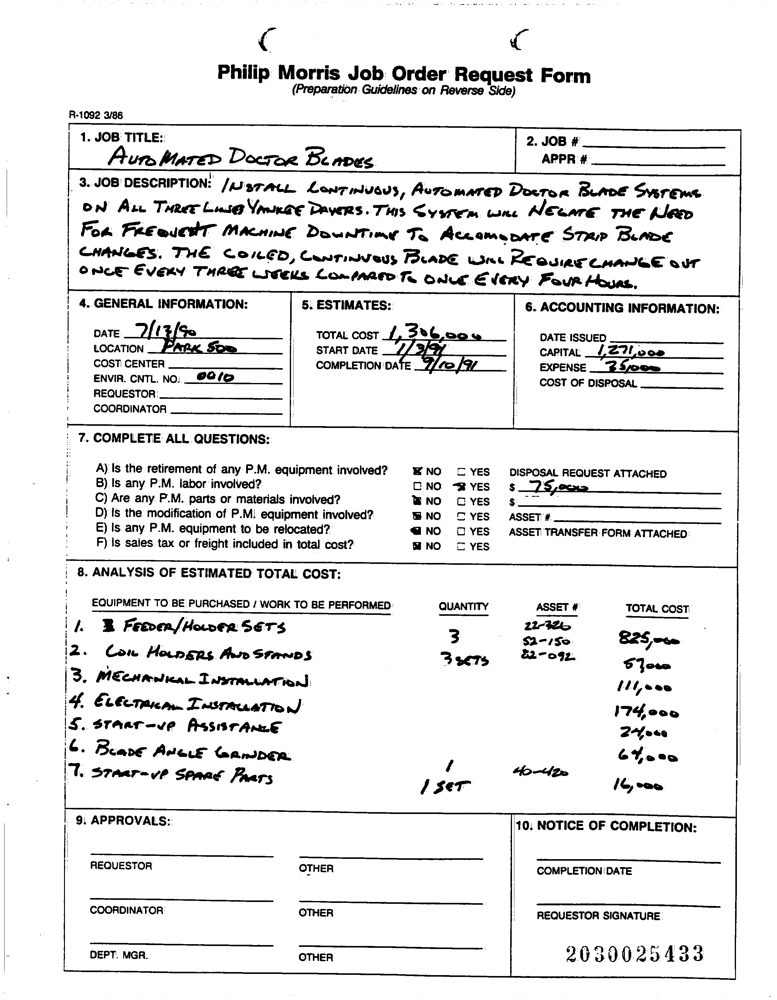 Philip Morris Job Order Request Form
(Preparation Guidelines on Reverse Side)
R-1092 3/86
1. JOB TITLE:
AUTOMATED DOCTOR BLADES
2. JOB #
APPR #
3. JOB DESCRIPTION: INSTALL CONTINUOUS, AUTOMATED DOCTOR BLADE SYSTEMS
ON ALL THREE LINES YANKEE DRYERS. THIS SYSTEM WILL NEGATE THE NEED
FOR FREQUENT MACHINE DOWNTIME TO ACCOMODATE STRIP BLADE
CHANGES. THE COILED, CONTINUOUS BLADE WILL REQUIRE CHANGE OUT
ONCE EVERY THREE WEEKS COMPARED TO ONCE EVERY FOUR HOURS.
4. GENERAL INFORMATION:
DATE 7/13/90
LOCATION PARK 500
COST CENTER
ENVIR. CNTL. NO. 0010
REQUESTOR
COORDINATOR
5. ESTIMATES:
TOTAL COST 1,306,000
START DATE 1/3/91
COMPLETION DATE 9/10/91
6. ACCOUNTING INFORMATION:
DATE ISSUED
CAPITAL 1,271,000
EXPENSE 35,000
COST OF DISPOSAL
7. COMPLETE ALL QUESTIONS:
A) Is the retirement of any P.M. equipment involved? NO YES DISPOSAL REQUEST ATTACHED
B) Is any P.M. labor involved? NO YES $ 75,000
C) Are any P.M. parts or materials involved? NO YES $
D) Is the modification of P.M. equipment involved? NO YES ASSET #
E) Is any P.M. equipment to be relocated? NO YES ASSET TRANSFER FORM ATTACHED
F) Is sales tax or freight included in total cost? NO YES
8. ANALYSIS OF ESTIMATED TOTAL COST:
EQUIPMENT TO BE PURCHASED / WORK TO BE PERFORMED QUANTITY ASSET # TOTAL COST
22-326
1. FEEDER/HOLDER SETS 3 52-150 825,000
2. COIL HOLDERS AND STANDS 3 SETS 22-092 57,000
3. MECHANICAL INSTALLATION 111,000
4. ELECTRICAL INSTALLATION 174,000
5. START-UP ASSISTANCE 24,000
6. BLADE ANGLE GRINDER 1 40-420 64,000
7. START-UP SPARE PARTS 1 SET 16,000
9. APPROVALS:
REQUESTOR OTHER
COORDINATOR OTHER
DEPT. MGR. OTHER
10. NOTICE OF COMPLETION:
COMPLETION DATE
REQUESTOR SIGNATURE
2030025433